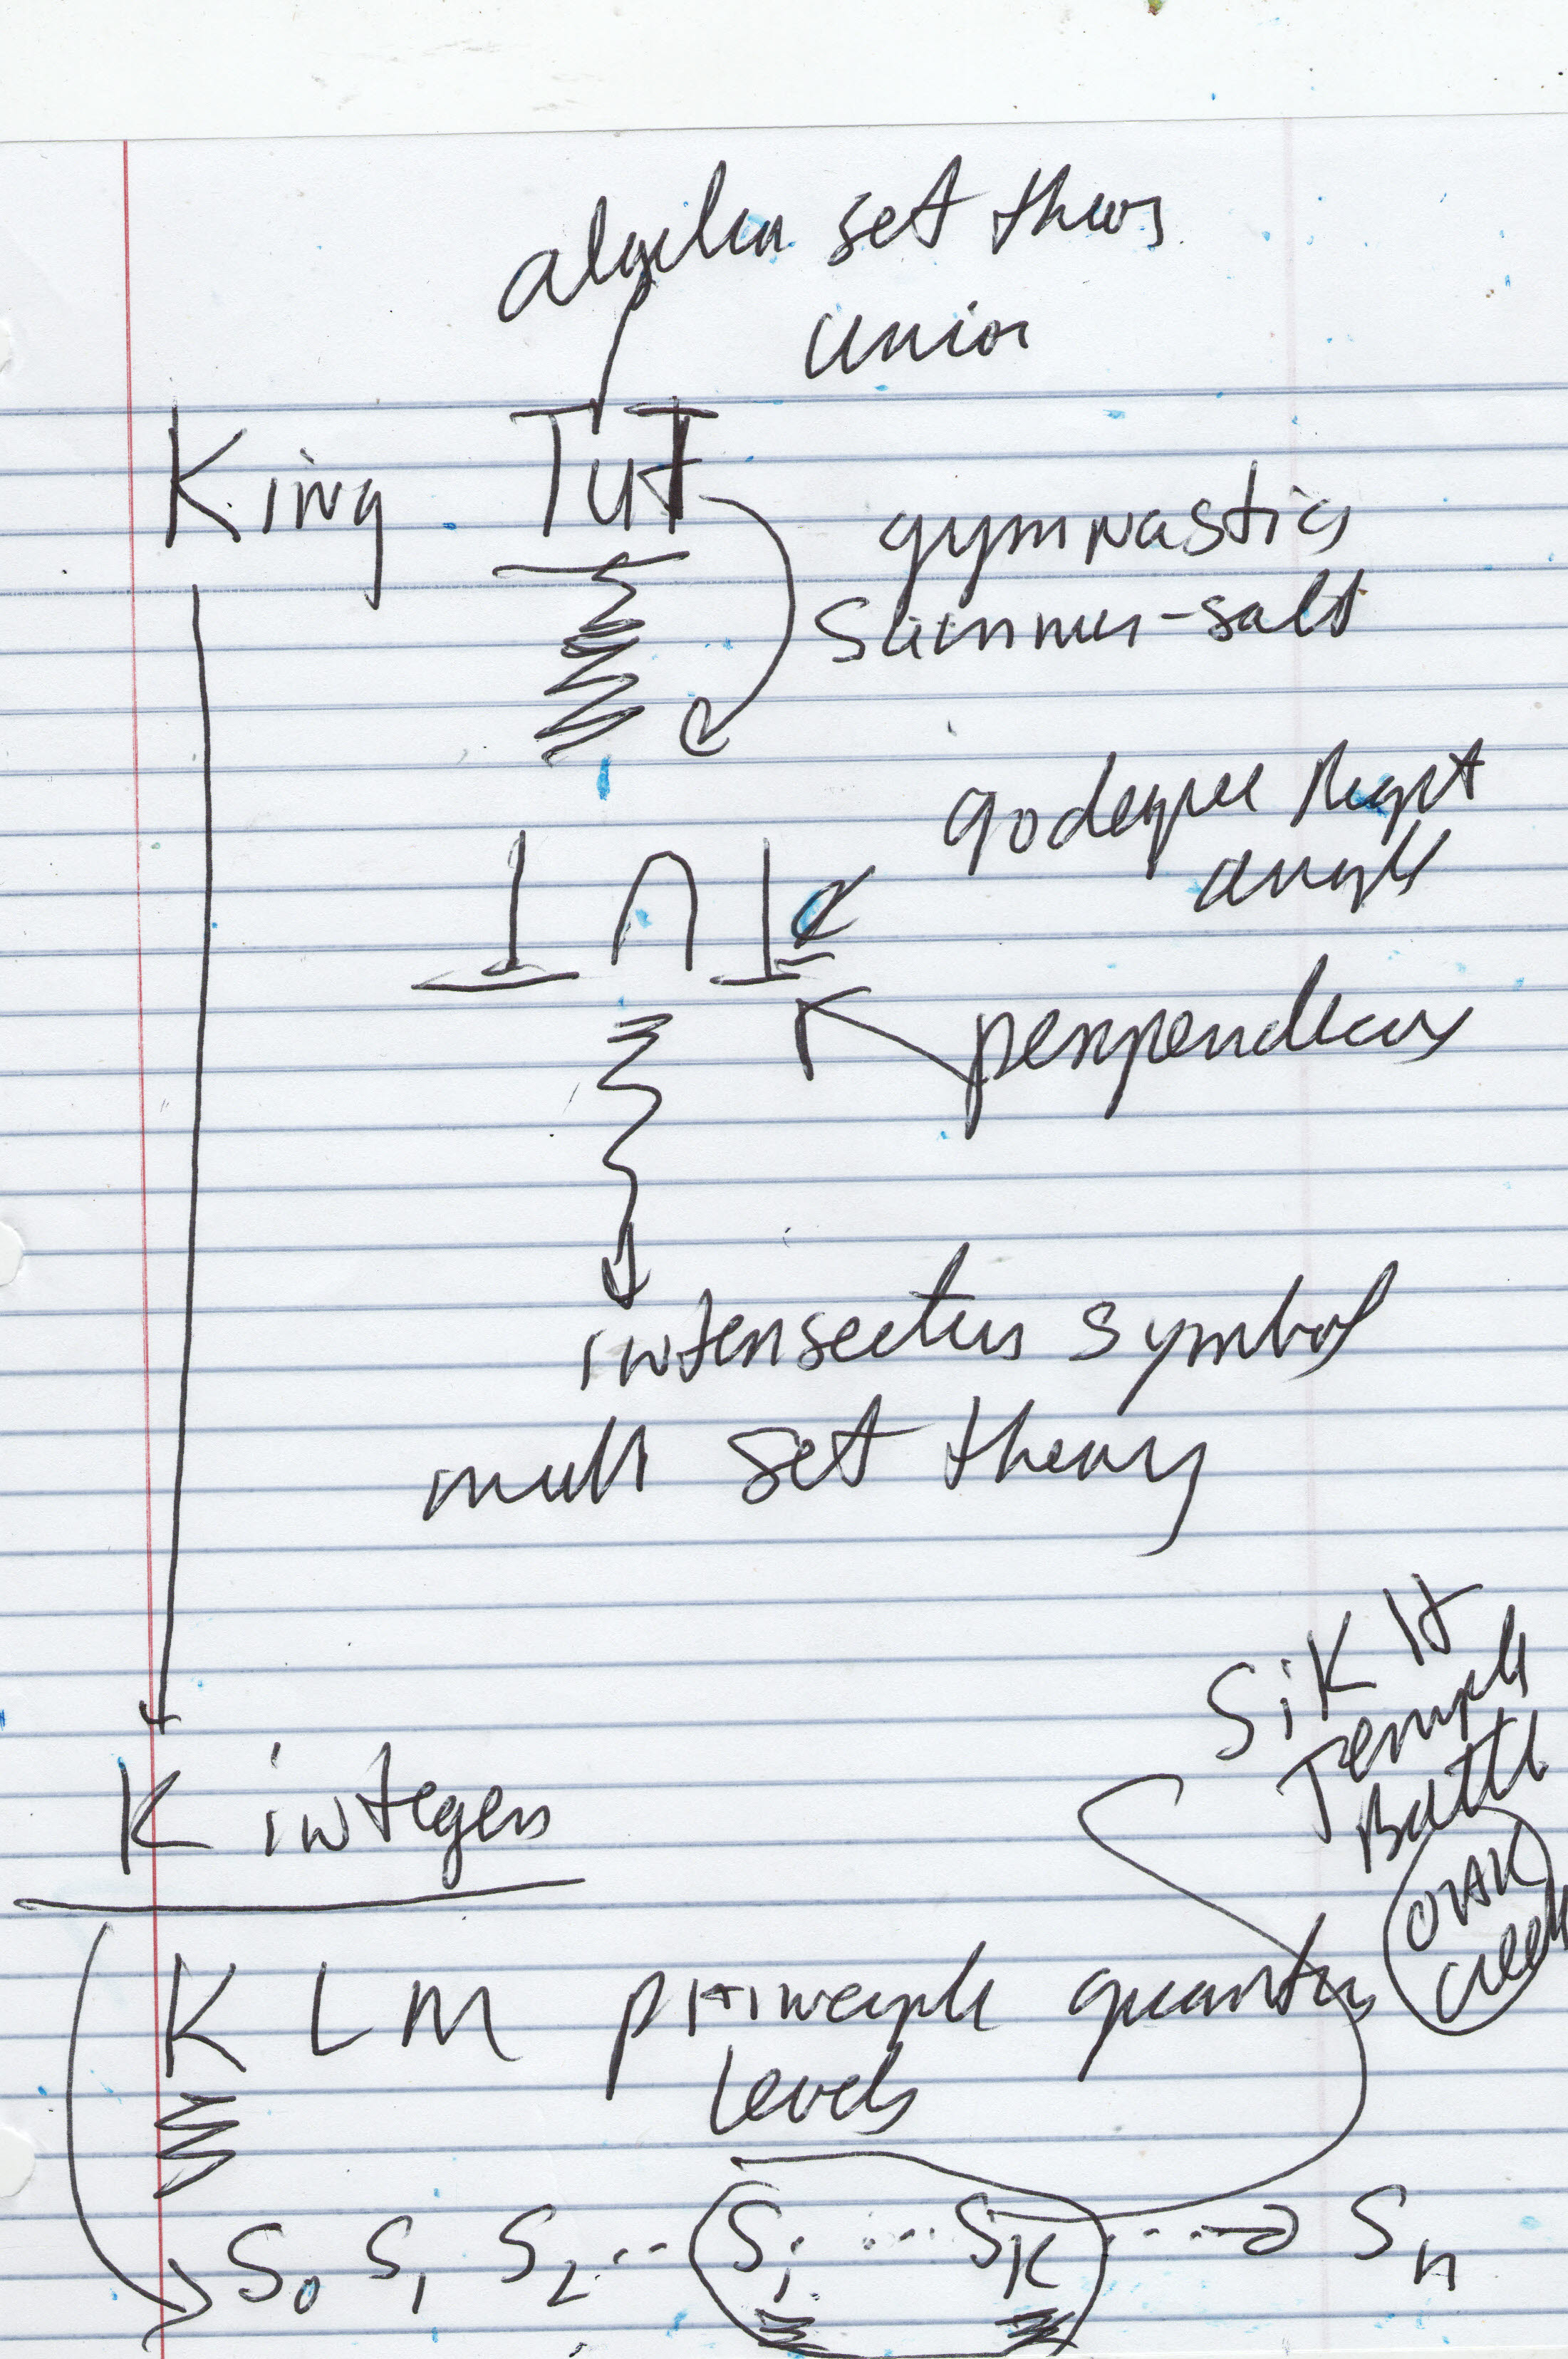 algebra set theory
union
King TUT
gymnastics
Summer-salt
90 degree Right
angle
⊥ ∩ ⊥
perpendicular
intersection symbol
null set theory
Sik H
Temple
Battle
OAK
Creek
K integer
K L M principle quantum
levels
S0 S1 S2 ... Si ... SK ... → Sn